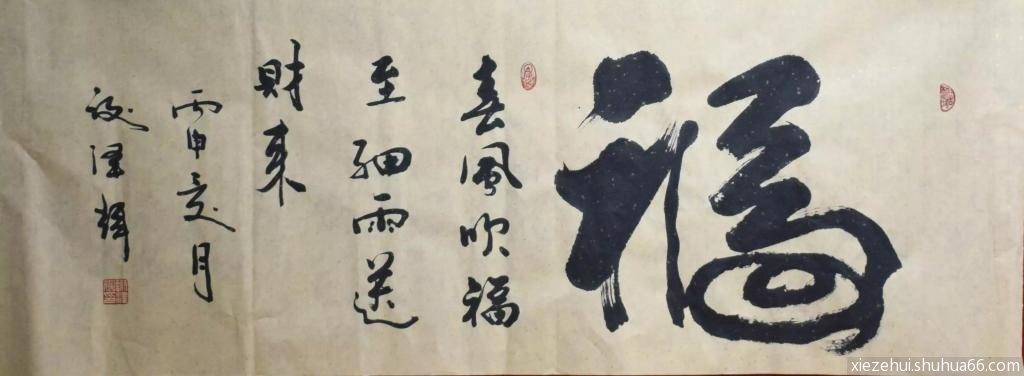 福
春風吹福
至細雨送
財来
丙申夏月
谢泽輝
xiezehui.shuhua66.com